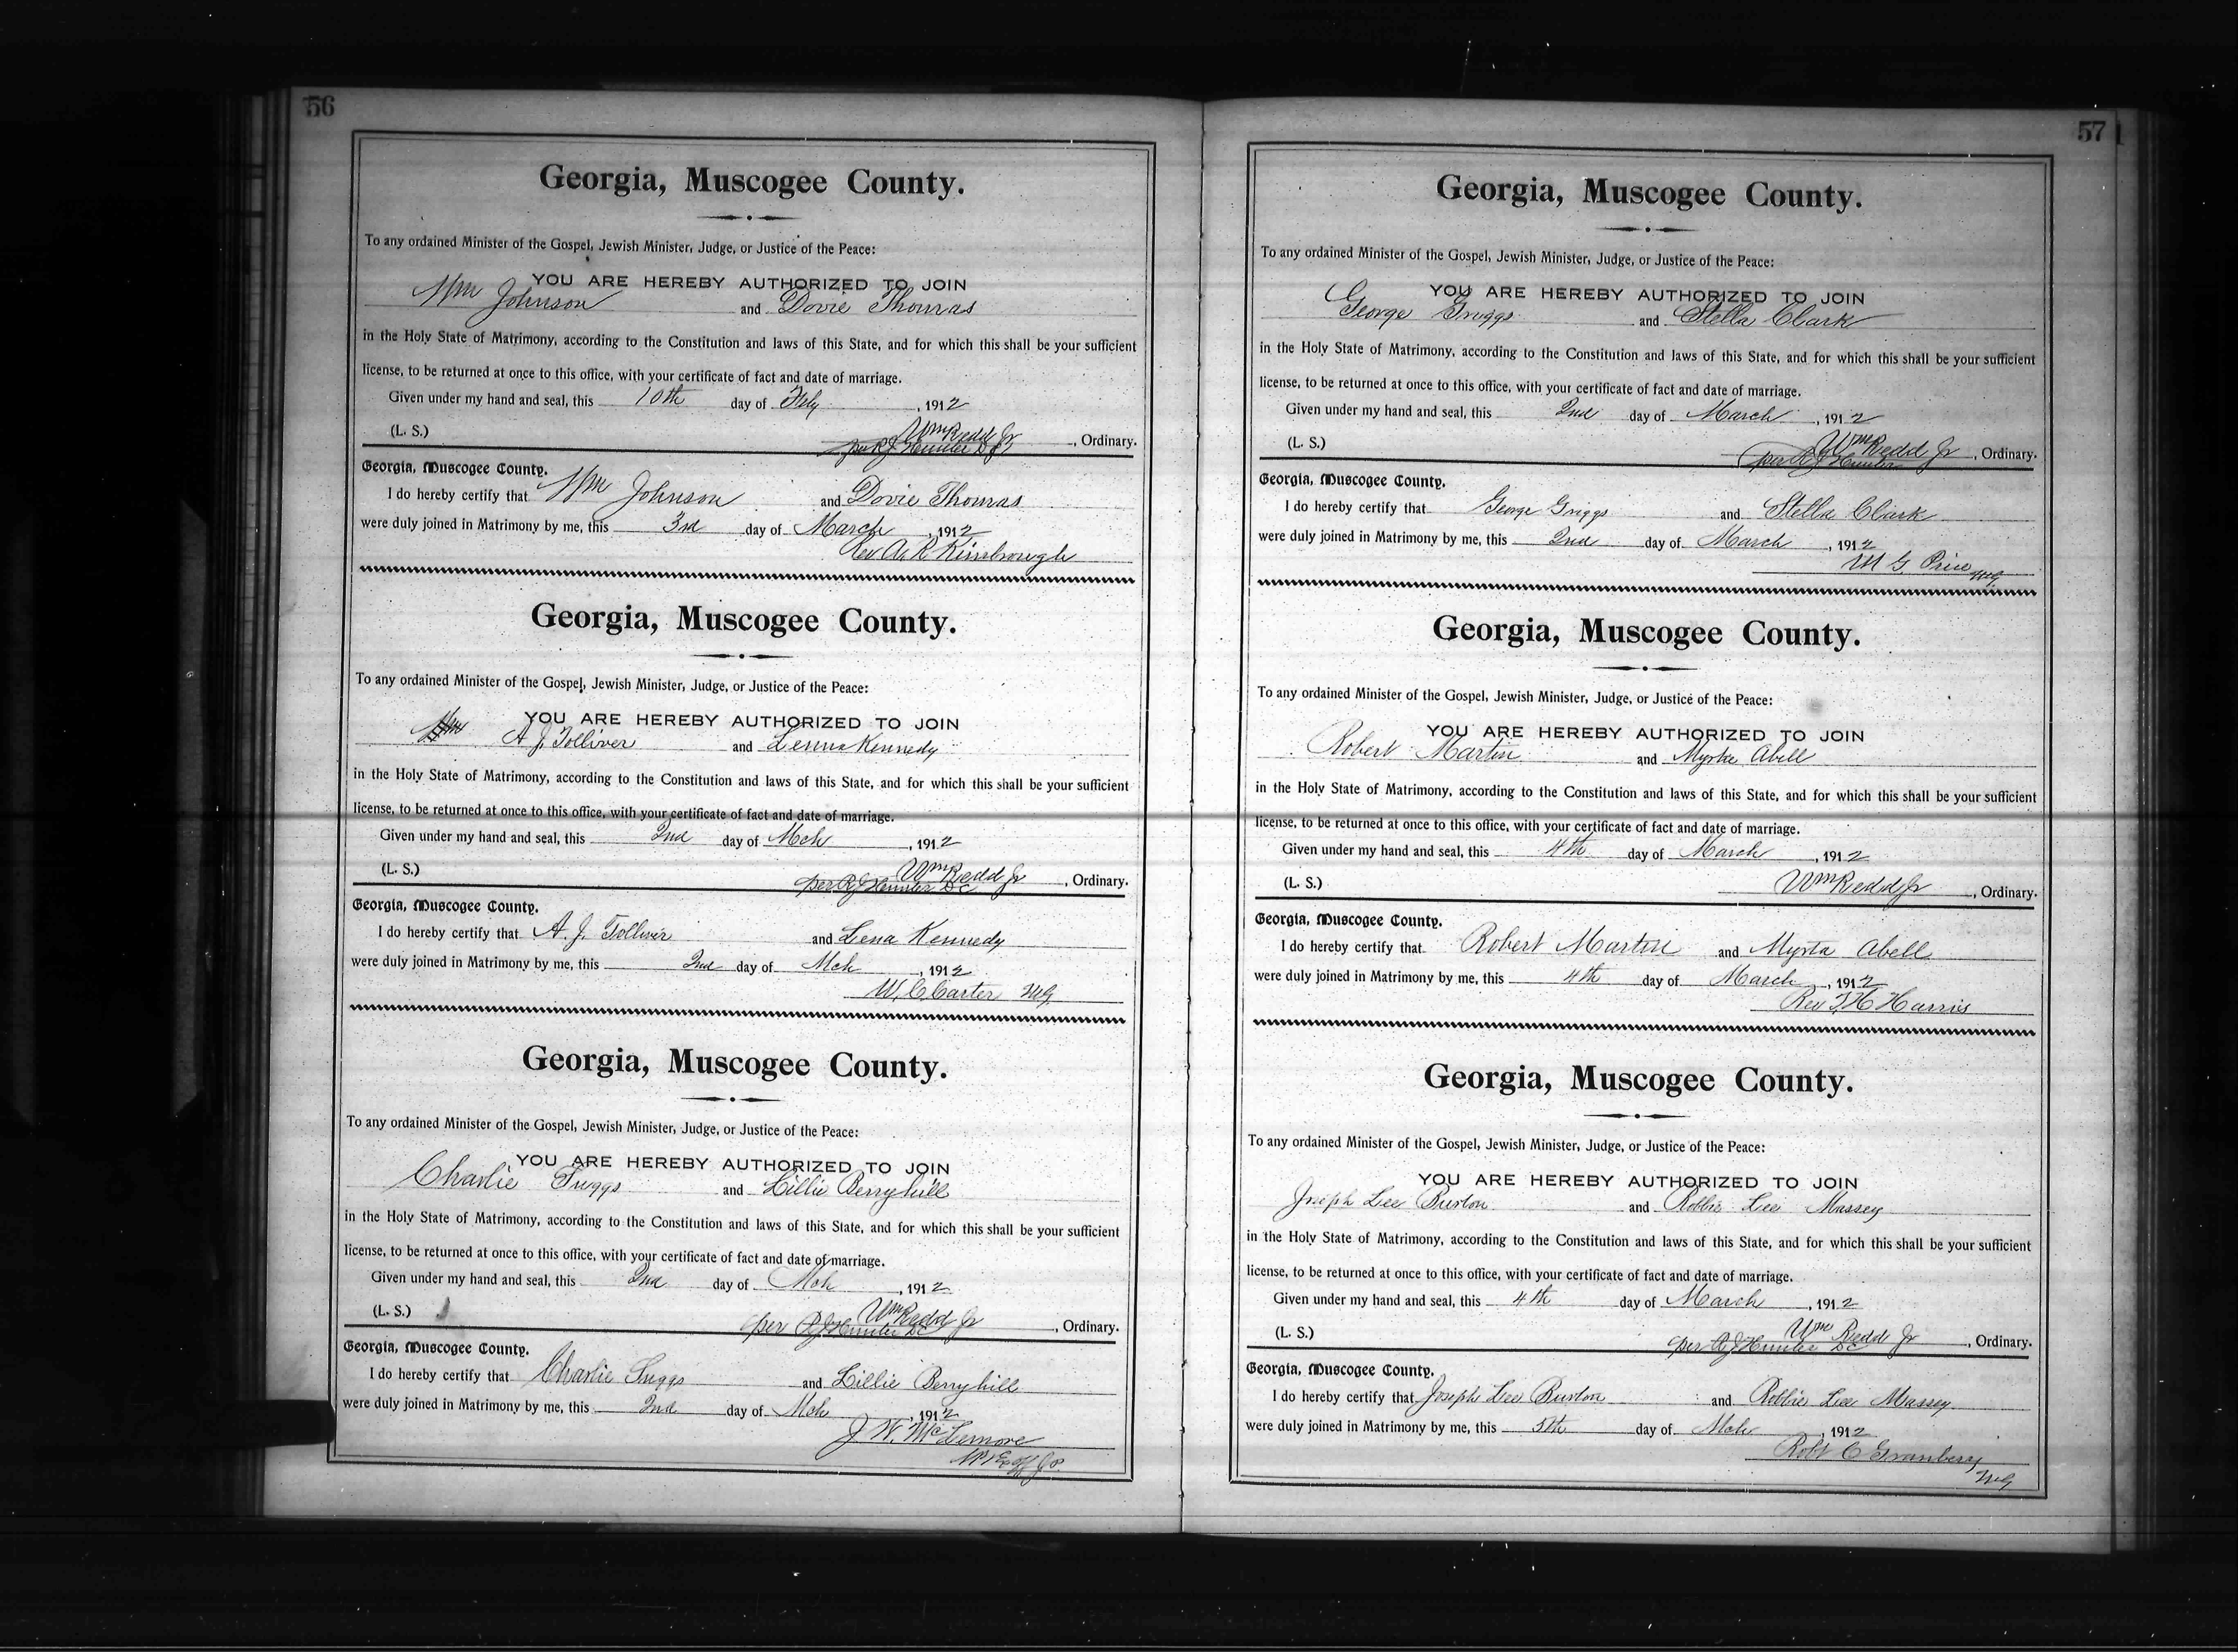 56
Georgia, Muscogee County.
To any ordained Minister of the Gospel, Jewish Minister, Judge, or Justice of the Peace:
YOU ARE HEREBY AUTHORIZED TO JOIN
Wm Johnson and Dovie Thomas
in the Holy State of Matrimony, according to the Constitution and laws of this State, and for which this shall be your sufficient
license, to be returned at once to this office, with your certificate of fact and date of marriage.
Given under my hand and seal, this 10th day of Feby, 1912
(L. S.) Wm Redd Jr, Ordinary.
per R J Hunter D C
Georgia, Muscogee County.
I do hereby certify that Wm Johnson and Dovie Thomas
were duly joined in Matrimony by me, this 3rd day of March, 1912
Rev A. R. Kimbrough
Georgia, Muscogee County.
To any ordained Minister of the Gospel, Jewish Minister, Judge, or Justice of the Peace:
YOU ARE HEREBY AUTHORIZED TO JOIN
A J Tolliver and Lenna Kennedy
in the Holy State of Matrimony, according to the Constitution and laws of this State, and for which this shall be your sufficient
license, to be returned at once to this office, with your certificate of fact and date of marriage.
Given under my hand and seal, this 2nd day of Mch, 1912
(L. S.) Wm Redd Jr, Ordinary.
per R J Hunter D C
Georgia, Muscogee County.
I do hereby certify that A. J. Tolliver and Lena Kennedy
were duly joined in Matrimony by me, this 2nd day of Mch, 1912
W, C Carter M G
Georgia, Muscogee County.
To any ordained Minister of the Gospel, Jewish Minister, Judge, or Justice of the Peace:
YOU ARE HEREBY AUTHORIZED TO JOIN
Charlie Suggs and Lillie Berryhill
in the Holy State of Matrimony, according to the Constitution and laws of this State, and for which this shall be your sufficient
license, to be returned at once to this office, with your certificate of fact and date of marriage.
Given under my hand and seal, this 2nd day of Mch, 1912
(L. S.) Wm Redd Jr, Ordinary.
per R J Hunter D C
Georgia, Muscogee County.
I do hereby certify that Charlie Suggs and Lillie Berryhill
were duly joined in Matrimony by me, this 2nd day of Mch, 1912
J. W. McLemore
57
Georgia, Muscogee County.
To any ordained Minister of the Gospel, Jewish Minister, Judge, or Justice of the Peace:
YOU ARE HEREBY AUTHORIZED TO JOIN
George Griggs and Stella Clark
in the Holy State of Matrimony, according to the Constitution and laws of this State, and for which this shall be your sufficient
license, to be returned at once to this office, with your certificate of fact and date of marriage.
Given under my hand and seal, this 2nd day of March, 1912
(L. S.) Wm Redd Jr, Ordinary.
per R J Hunter
Georgia, Muscogee County.
I do hereby certify that George Griggs and Stella Clark
were duly joined in Matrimony by me, this 2nd day of March, 1912
M G. Price M G
Georgia, Muscogee County.
To any ordained Minister of the Gospel, Jewish Minister, Judge, or Justice of the Peace:
YOU ARE HEREBY AUTHORIZED TO JOIN
Robert Martin and Myrta Abell
in the Holy State of Matrimony, according to the Constitution and laws of this State, and for which this shall be your sufficient
license, to be returned at once to this office, with your certificate of fact and date of marriage.
Given under my hand and seal, this 4th day of March, 1912
(L. S.) Wm Redd Jr, Ordinary.
Georgia, Muscogee County.
I do hereby certify that Robert Martin and Myrta Abell
were duly joined in Matrimony by me, this 4th day of March, 1912
Rev T. H Harris
Georgia, Muscogee County.
To any ordained Minister of the Gospel, Jewish Minister, Judge, or Justice of the Peace:
YOU ARE HEREBY AUTHORIZED TO JOIN
Joseph Lee Burton and Robbie Lee Massey
in the Holy State of Matrimony, according to the Constitution and laws of this State, and for which this shall be your sufficient
license, to be returned at once to this office, with your certificate of fact and date of marriage.
Given under my hand and seal, this 4th day of March, 1912
(L. S.) Wm Redd Jr, Ordinary.
per R J Hunter D C
Georgia, Muscogee County.
I do hereby certify that Joseph Lee Burton and Robbie Lee Massey
were duly joined in Matrimony by me, this 5th day of Mch, 1912
Robt C Granbery
M G